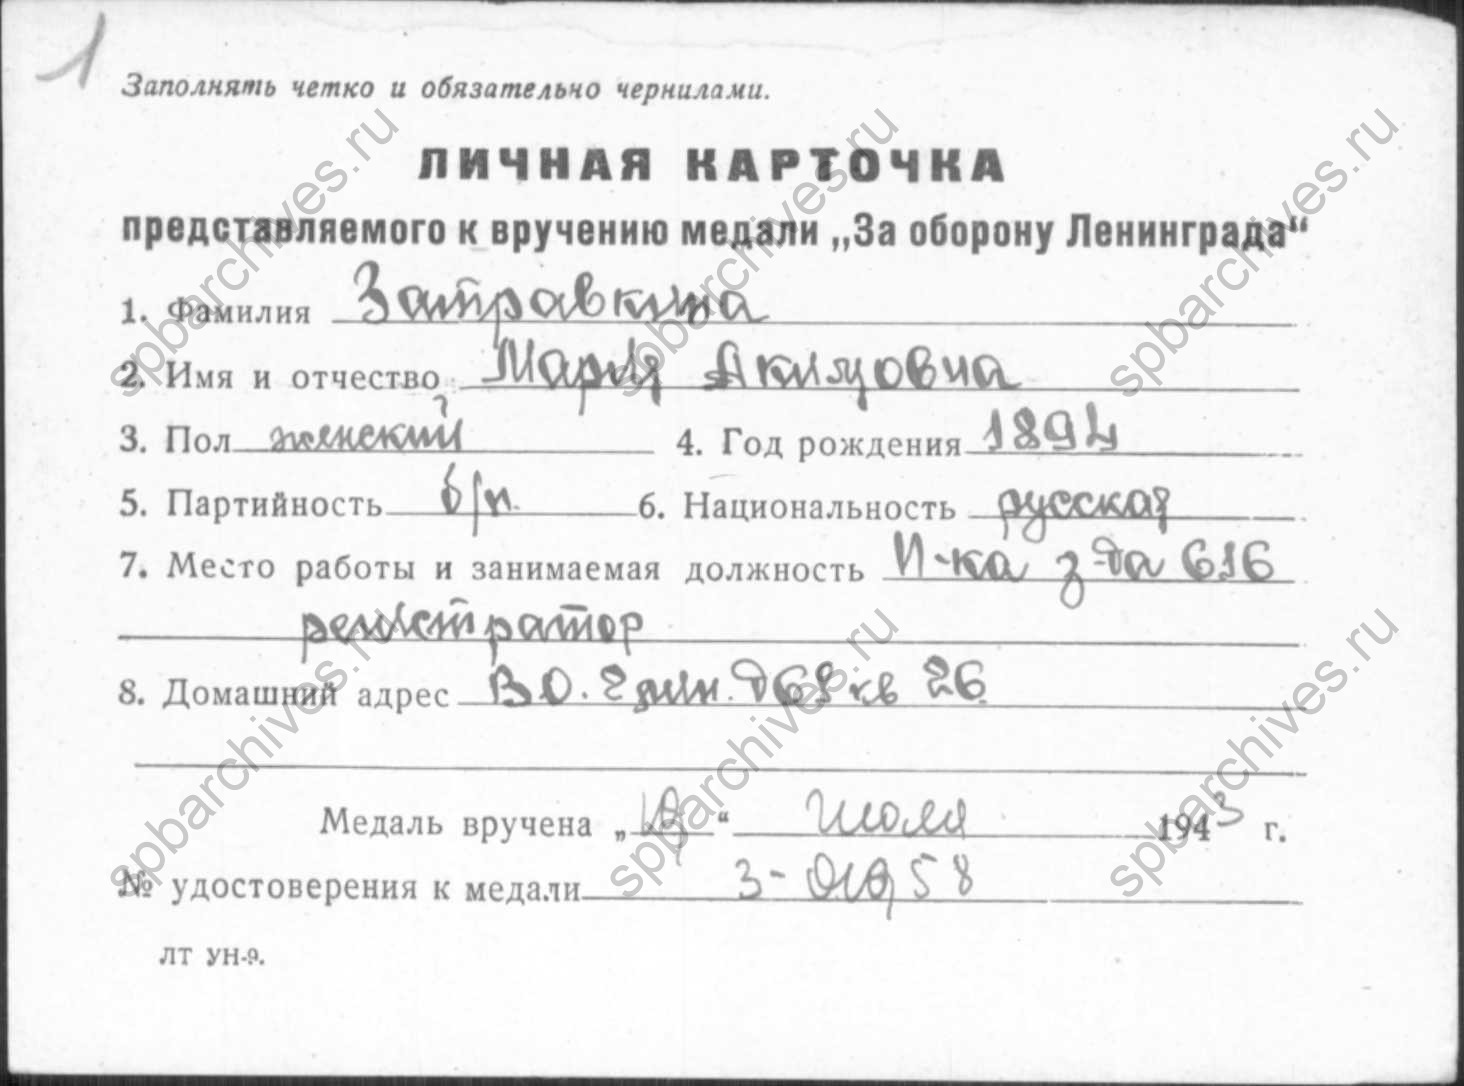 1
Заполнять четко и обязательно чернилами.
ЛИЧНАЯ КАРТОЧКА
представляемого к вручению медали „За оборону Ленинграда“
1. Фамилия Затравкина
2. Имя и отчество Мария Акимовна
3. Пол женский 4. Год рождения 1894
5. Партийность б/п. 6. Национальность русская
7. Место работы и занимаемая должность П-ка з-да 616
регистратор
8. Домашний адрес В О. 2 лин. д 61 кв 26
Медаль вручена „ “ июля 1943 г.
№ удостоверения к медали
ЛТ УН-9.
spbarchives.ru
spbarchives.ru
spbarchives.ru
spbarchives.ru
spbarchives.ru
spbarchives.ru